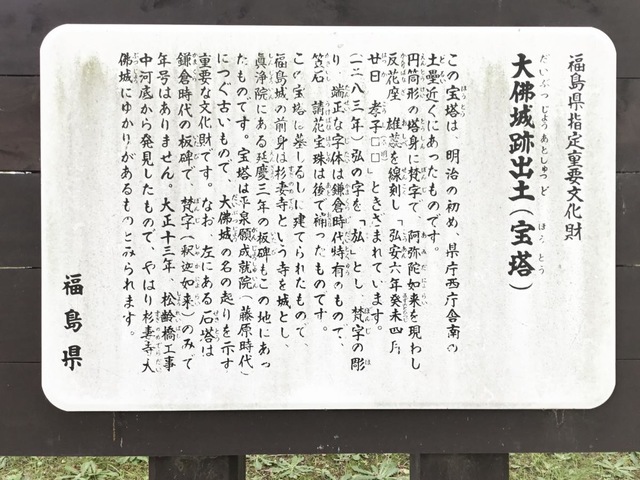 福島県指定重要文化財
大佛城跡出土(宝塔)
この宝塔は、明治の初め、県庁西庁舎南の
土塁近くにあったものです。
円筒形の塔身に梵字で、阿弥陀如来を現わし
反花座、雄蕋を線刻し「弘安六年癸未四月
廿日 孝子□□」ときざまれています。
(一二八三年)弘の字を「𢎞」とし、梵字の彫
り、端正な字体は鎌倉時代特有のもので、
笠石 請花宝珠は後で補ったものです。
この宝塔は墓じるしに建てられたもので、
福島城の前身は杉妻寺という寺を城とし、
眞浄院にある延慶三年の板碑もこの地にあっ
たものです。宝塔は平泉願成就院(藤原時代)
につぐ古いもので、大佛城の名の起りを示す
重要な文化財です。なお、左にある石塔は
鎌倉時代の板碑で、梵字(釈迦如来)のみで
年号はありません。大正十三年、松齢橋工事
中河底から発見したもので、やはり杉妻寺大
佛城にゆかりがあるものとみられます。
福島県